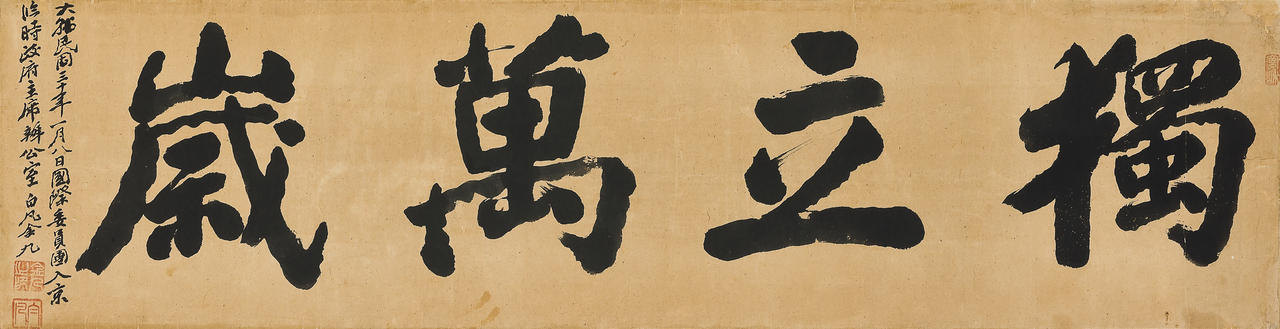 獨立萬歲
大韓民國三十年一月八日國際委員團入京
臨時政府主席辦公室 白凡金九